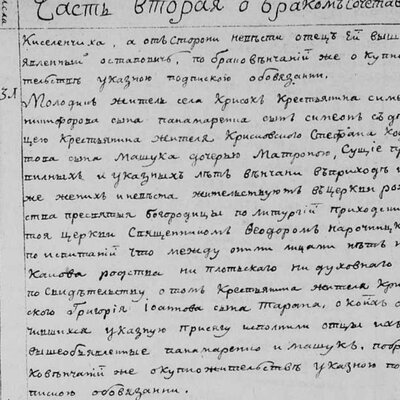 Часть вторая о бракомъсочета
Киселенчиха, а отъ стороны невѣсты отецъ Ей выш
явленный остаповичъ, по браковѣнчаній же о купно
тельствѣ указною подпискою обовязанни.
31
Молодикъ житель села Крисокъ Крестьянина симе
никифорова сына панамаренка сынъ симеонъ съ до
цею Крестьянина жителя Крисковского Стефана
това сына Машука дочерью Матроною, Сущіе пр
вилныхъ и указныхъ лѣтъ вѣнчани въ приходѣ и
же женихъ и невѣста жителствуютъ въ церкви рож
ства пресвятыя богородицы по литургіи приходскія
тоя церкви священникомъ Феодоромъ нарочицк
по испытаній что между оними лицами нѣтъ н
Какова родства ни плотьскаго ни духовнаго
по свидѣтельству о томъ Крестьянина жителя Кри
ского Григорія Іоаннова сына Тарана, о коихъ
чившихся указную присягу исполнили отцы ихъ
вышеобъявленные панамаренко и машукъ, по бра
ковѣнчаній же о купножителствѣ указною по
пискою обовязанни.